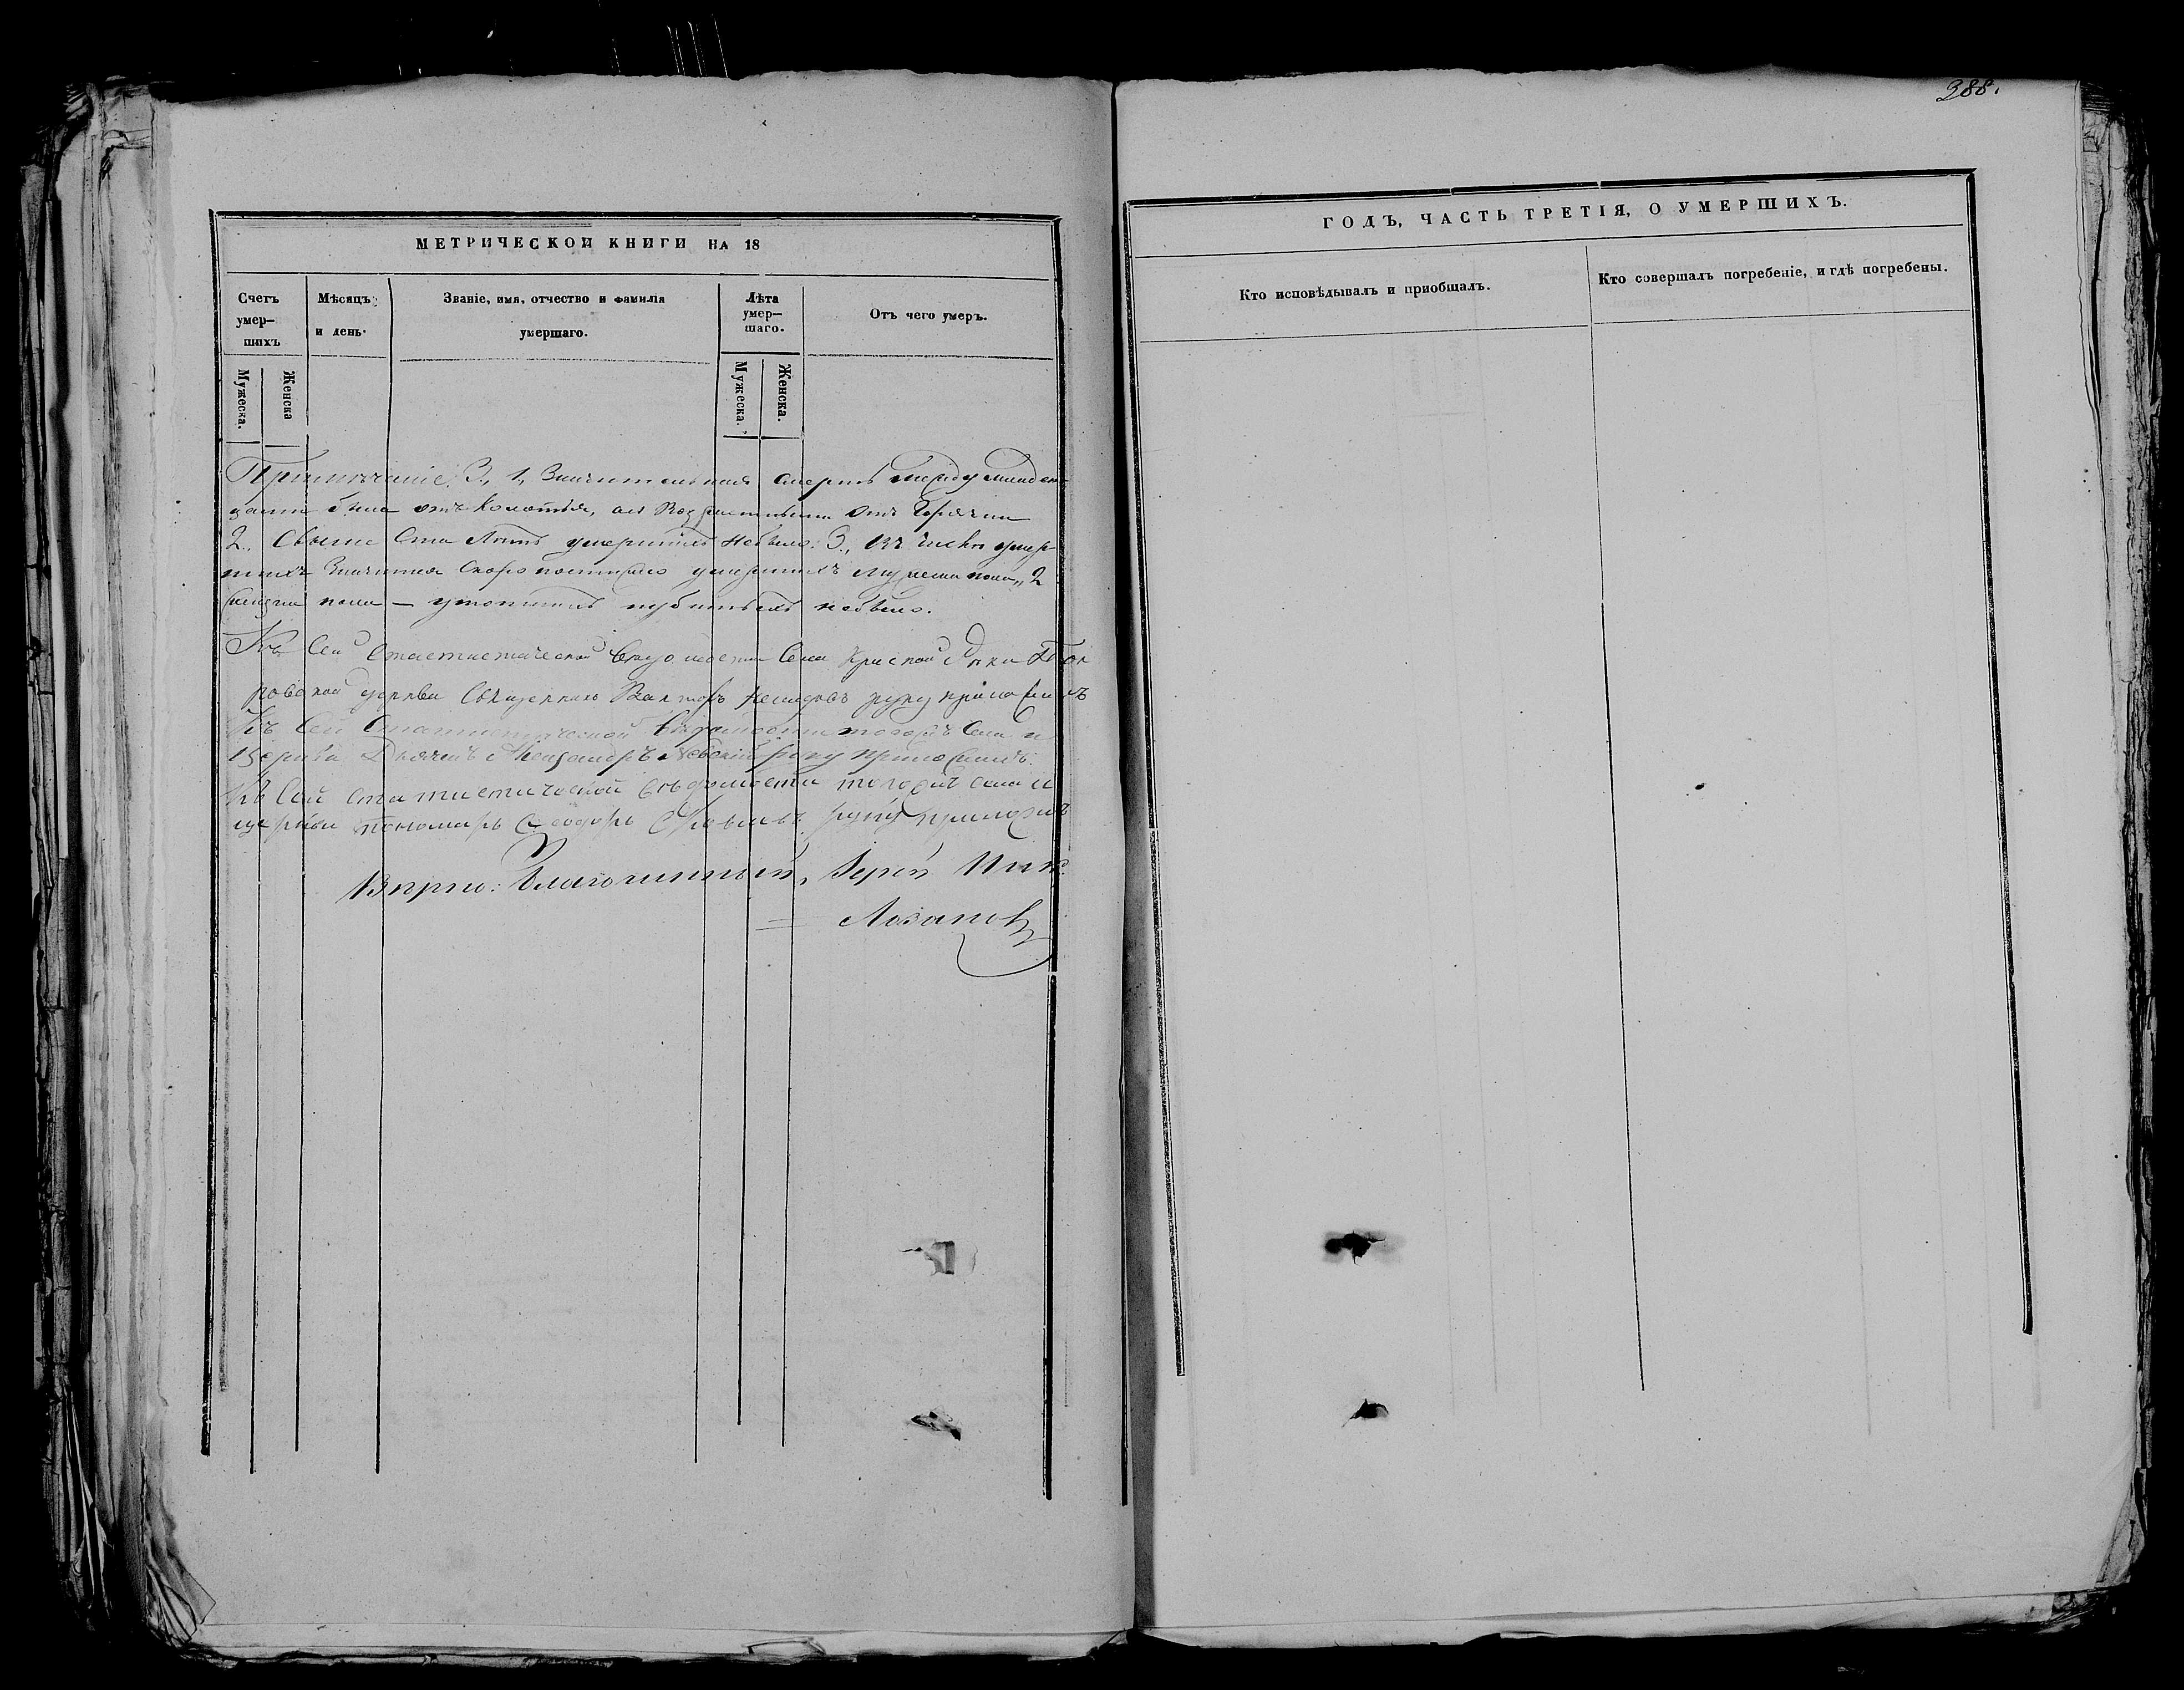 388.
МЕТРИЧЕСКОЙ КНИГИ НА 18
Счетъ
умер—
шихъ
Мѣсяцъ
и день.
Званіе, имя, отчество и фамилія
умершаго.
Лѣта
умер—
шаго.
Отъ чего умеръ.
Мужеска.
Женска
Мужеска.
Женска.
Примѣчаніе 3., 1, Значительная смерть между младен
цами была отъ Колотья, а отъ Горячки
2., Свыше Ста Лѣтъ умершихъ небыло. 3., Изъ числа умер-
шихъ значится скоропостижно умершихъ мужеска пола „ 2
женска пола — утопшихъ небыло.
Къ сей Статистической Вѣдомости Села Красной Рѣки Пок
ровской церкви Священникъ руку приложилъ
Къ сей Статистической Вѣдомости тогожъ Села и
Церкви Дьячекъ Александръ руку приложилъ.
Къ сей статистической вѣдомости тогожъ села и
церкви пономарь Ѳеодоръ руку приложилъ
Вѣрно: Благочинный, Іерей
Лозановъ
ГОДЪ, ЧАСТЬ ТРЕТІЯ, О УМЕРШИХЪ.
Кто исповѣдывалъ и приобщалъ.
Кто совершалъ погребеніе, и гдѣ погребены.